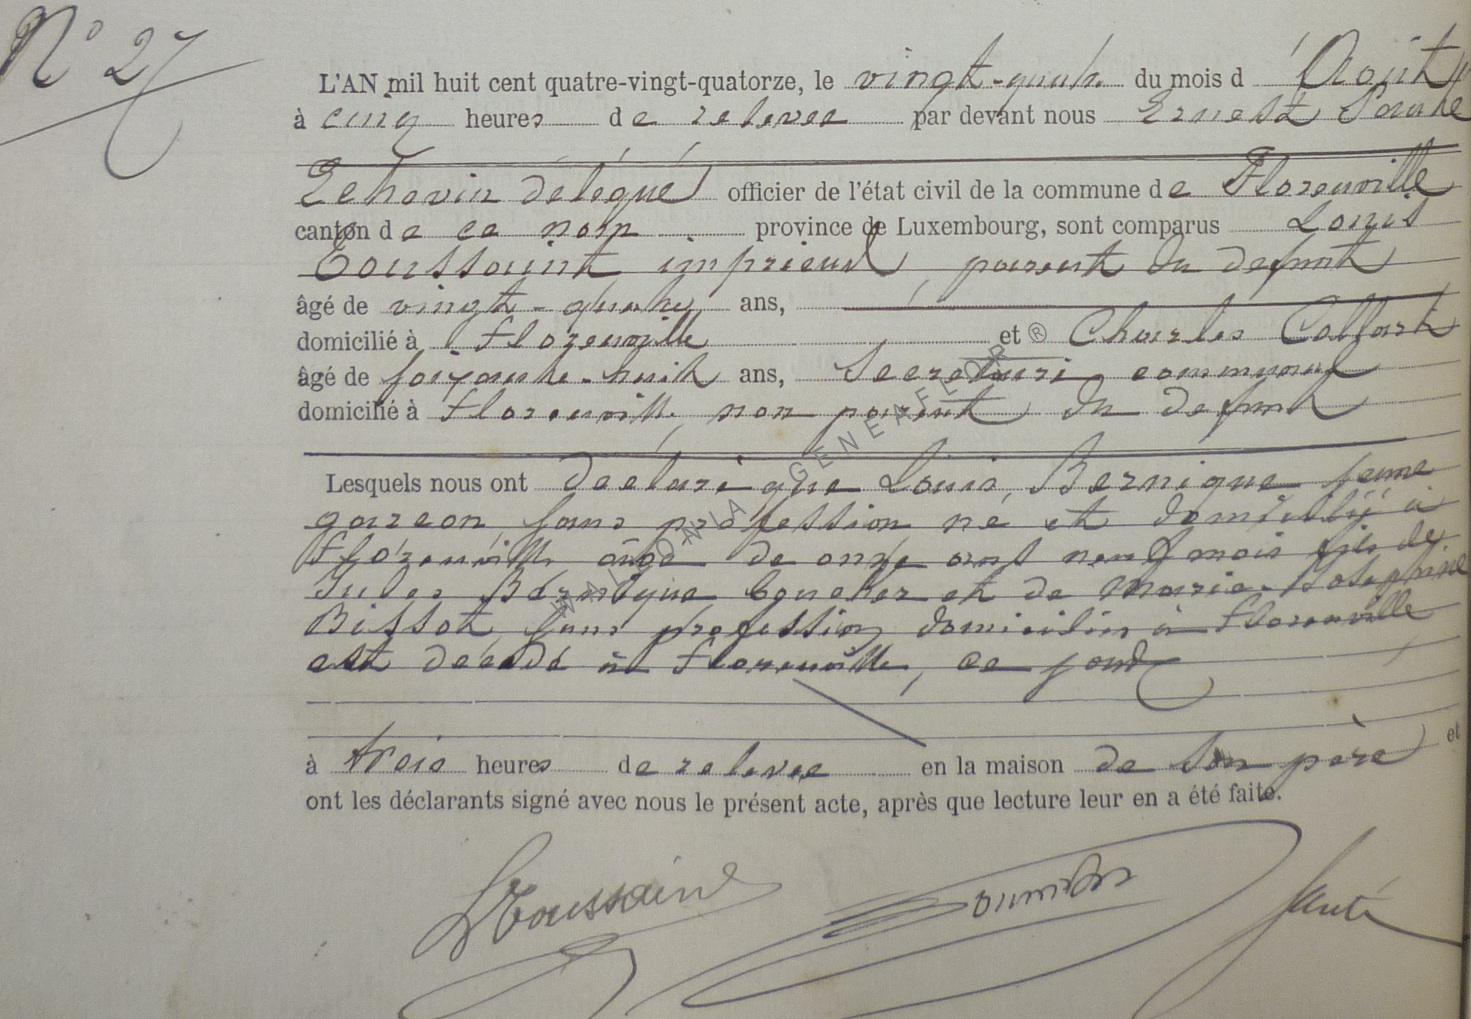 N° 27
L'AN mil huit cent quatre-vingt-quatorze, le vingt-quatre du mois d'Août
à cinq heures de relevée par devant nous Ernest
Echevin délégué officier de l'état civil de la commune de Florenville
canton de ce nom province de Luxembourg, sont comparus Louis
Toussaint imprieur, parent du defunt
âgé de vingt-quatre ans,
domicilié à Florenville et Charles Collart
âgé de soixante-huit ans, Secretaire communal
domicilié à Florenville non parent du defunt
Lesquels nous ont declaré que Louis, Bernique jeune
garcon, sans profession né et domicilié à
Florenville âgé de onze ans neuf mois fils de
Jules Bernique et de Marie-Josephine
Bissot, sans profession domiciliés à Florenville
est décédé à Florenville, ce jourd
à trois heures de relevée en la maison de Son père et
ont les déclarants signé avec nous le présent acte, après que lecture leur en a été faite.
LToussaint
WALLONIA GENEAFLOR ®